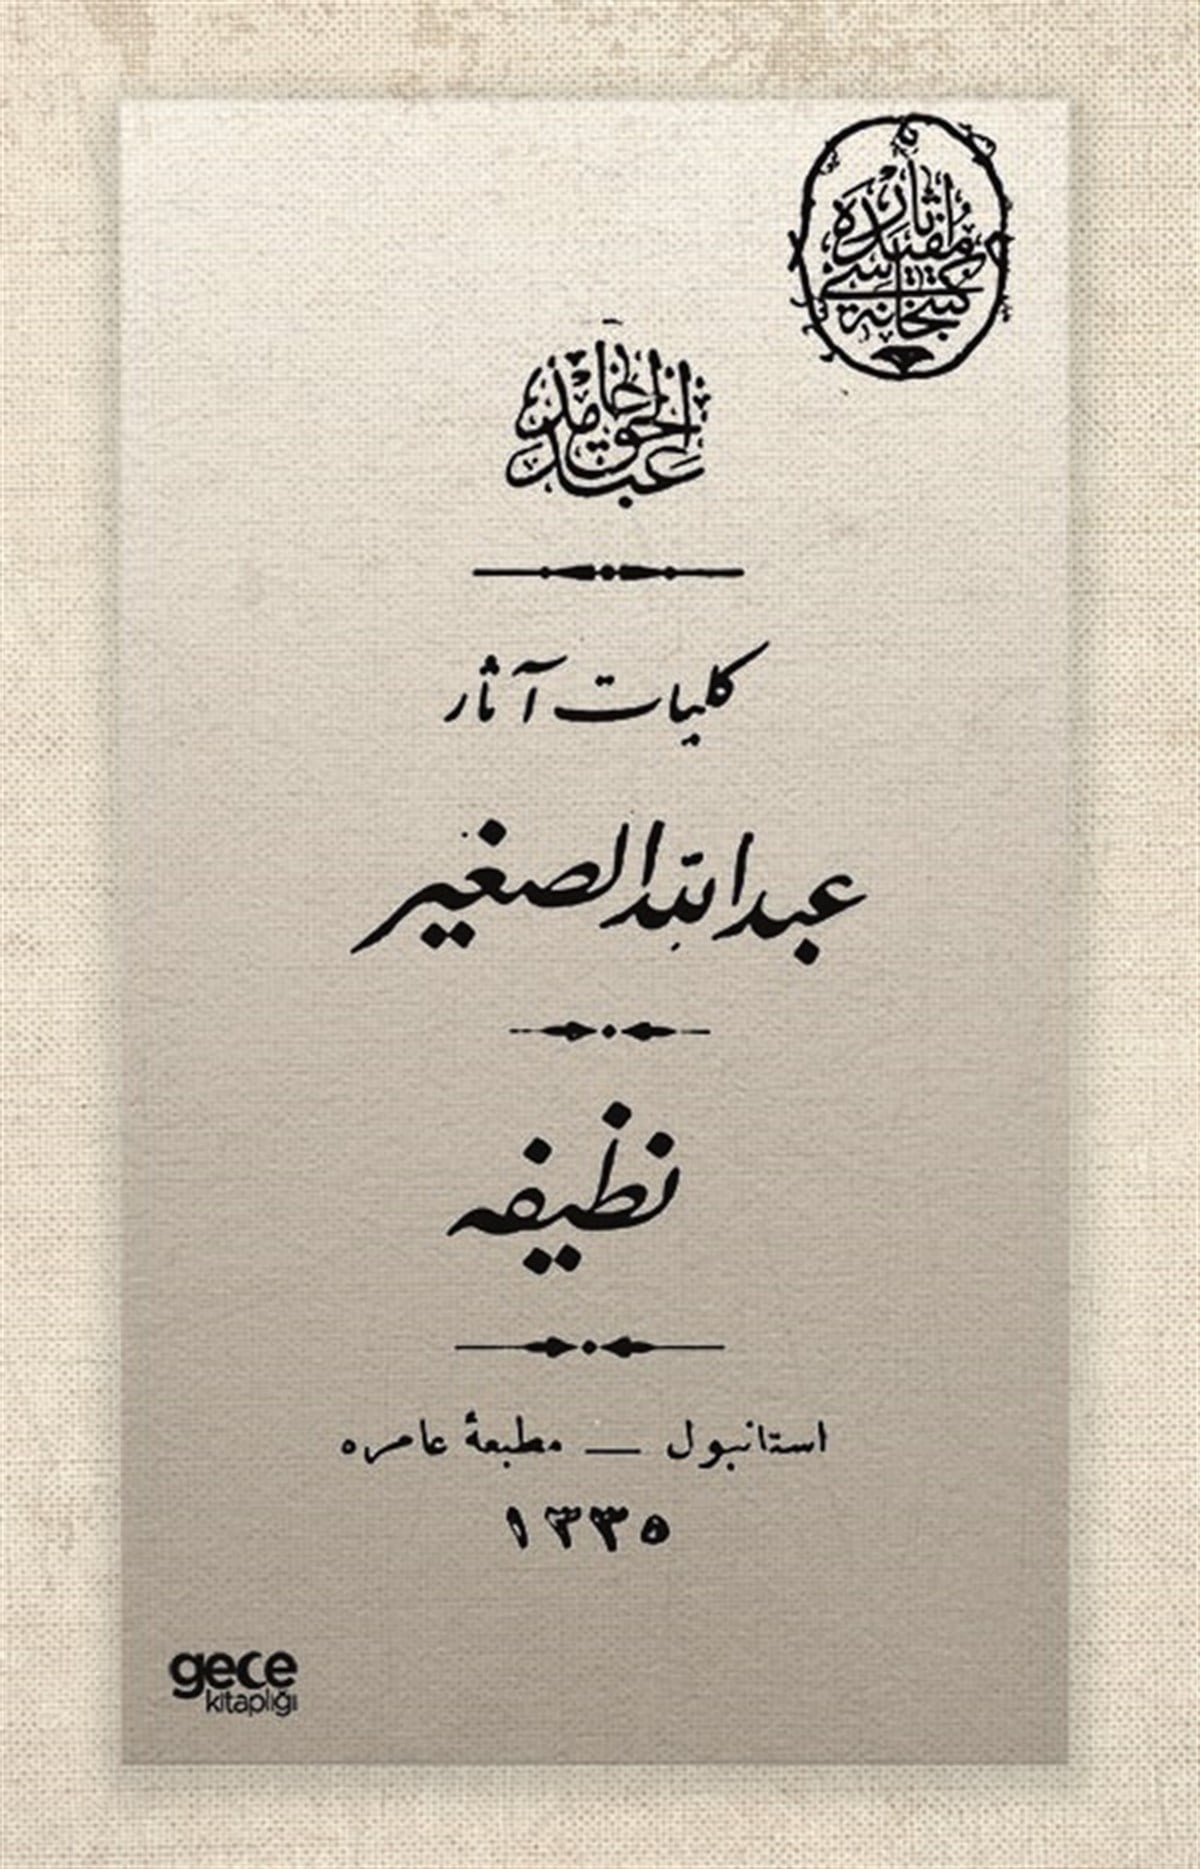 آثار مفیده
كتبخانه سی
عبد الحق حامد
كلیات آثار
عبدالله الصغیر
نظیفه
استانبول — مطبعهٔ عامره
١٣٣٥
gece
kitaplığı